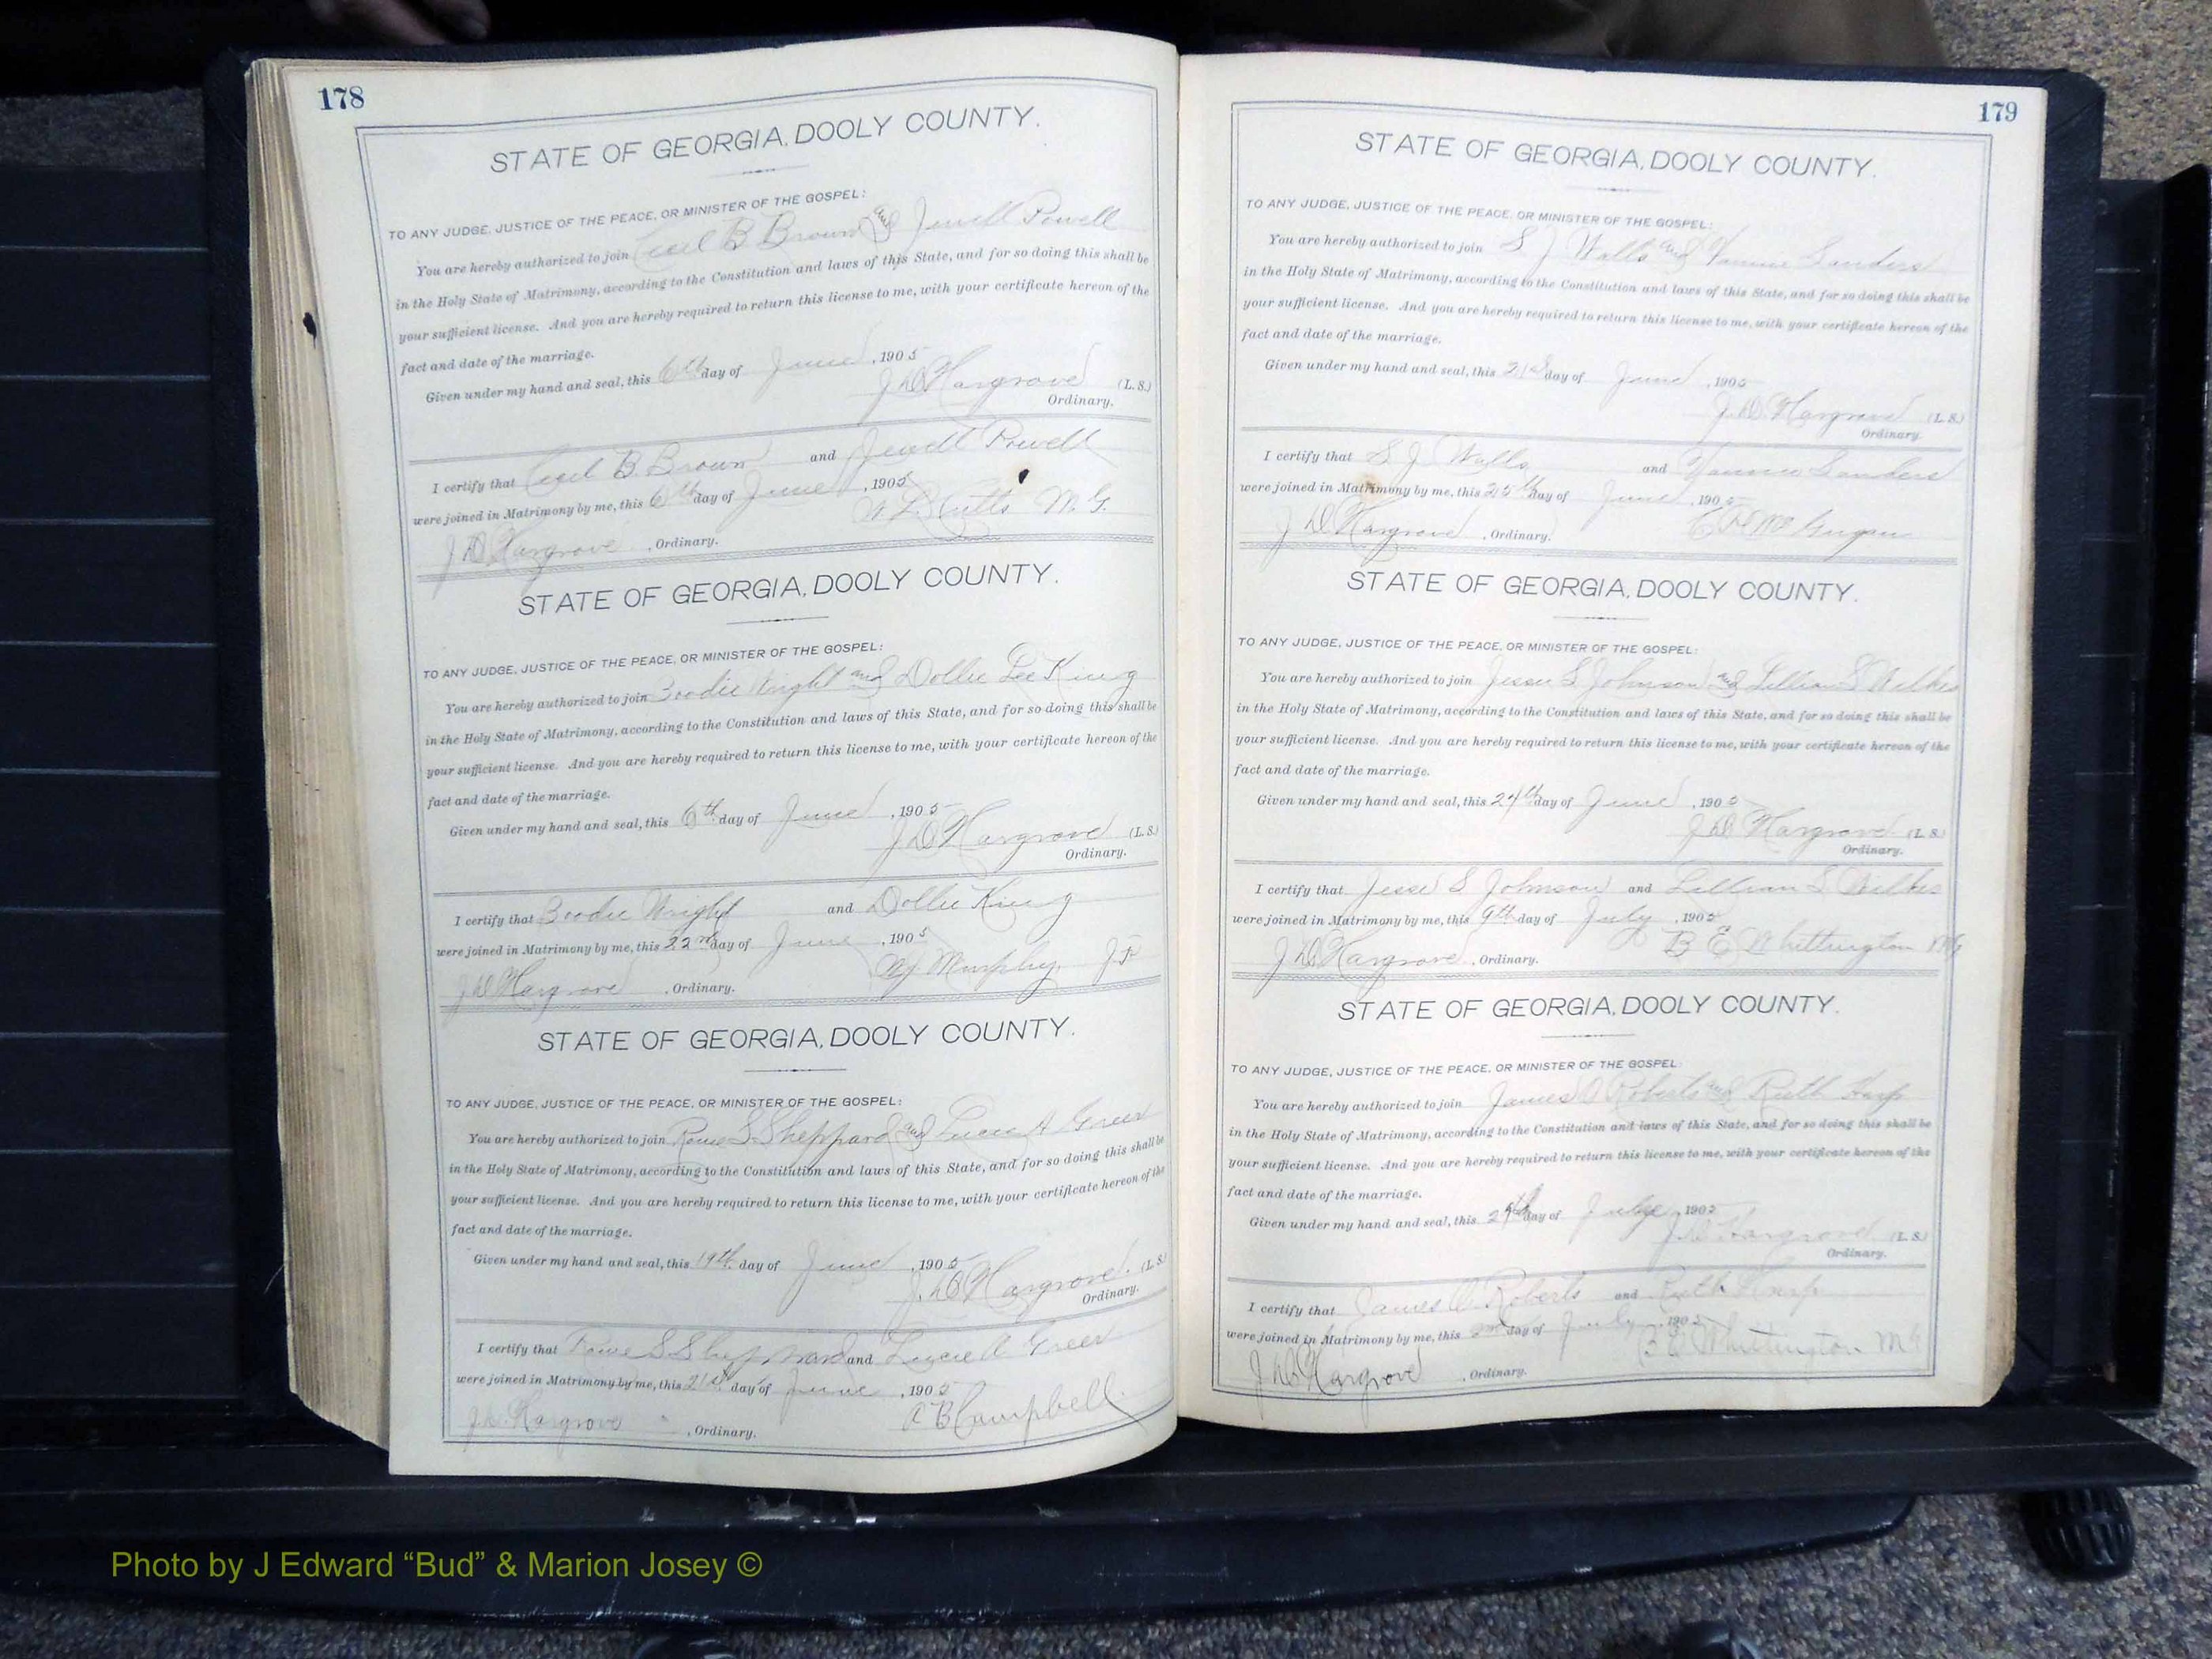 178
STATE OF GEORGIA, DOOLY COUNTY.
TO ANY JUDGE, JUSTICE OF THE PEACE, OR MINISTER OF THE GOSPEL:
You are hereby authorized to join Cecil B Brown and Jewell Powell
in the Holy State of Matrimony, according to the Constitution and laws of this State, and for so doing this shall be
your sufficient license. And you are hereby required to return this license to me, with your certificate hereon of the
fact and date of the marriage.
Given under my hand and seal, this 6th day of June, 1905
J D Hargrove (L. S.)
Ordinary.
I certify that Cecil B. Brown and Jewell Powell
were joined in Matrimony by me, this 6th day of June, 1905
Cutts M. G.
J D Hargrove, Ordinary.
STATE OF GEORGIA, DOOLY COUNTY.
TO ANY JUDGE, JUSTICE OF THE PEACE, OR MINISTER OF THE GOSPEL:
You are hereby authorized to join Boodie Wright and Dollie Lee King
in the Holy State of Matrimony, according to the Constitution and laws of this State, and for so doing this shall be
your sufficient license. And you are hereby required to return this license to me, with your certificate hereon of the
fact and date of the marriage.
Given under my hand and seal, this 6th day of June, 1905
J D Hargrove (L. S.)
Ordinary.
I certify that Boodie Wright and Dollie King
were joined in Matrimony by me, this 22nd day of June, 1905
Murphy J P
J D Hargrove, Ordinary.
STATE OF GEORGIA, DOOLY COUNTY.
TO ANY JUDGE, JUSTICE OF THE PEACE, OR MINISTER OF THE GOSPEL:
You are hereby authorized to join Rowe S Sheppard and Lucie A Greer
in the Holy State of Matrimony, according to the Constitution and laws of this State, and for so doing this shall be
your sufficient license. And you are hereby required to return this license to me, with your certificate hereon of the
fact and date of the marriage.
Given under my hand and seal, this 19th day of June, 1905
J. D Hargrove. (L. S.)
Ordinary.
I certify that Rowe S Sheppard and Lucie A Greer
were joined in Matrimony by me, this 21st day of June, 1905
A B Campbell
J. D. Hargrove, Ordinary.
179
STATE OF GEORGIA, DOOLY COUNTY.
TO ANY JUDGE, JUSTICE OF THE PEACE, OR MINISTER OF THE GOSPEL:
You are hereby authorized to join S J Walls and Sanders
in the Holy State of Matrimony, according to the Constitution and laws of this State, and for so doing this shall be
your sufficient license. And you are hereby required to return this license to me, with your certificate hereon of the
fact and date of the marriage.
Given under my hand and seal, this 21st day of June, 1905
J. D. Hargrove (L. S.)
Ordinary.
I certify that S J Walls and Sanders
were joined in Matrimony by me, this 25th day of June, 1905
J D Hargrove, Ordinary.
STATE OF GEORGIA, DOOLY COUNTY.
TO ANY JUDGE, JUSTICE OF THE PEACE, OR MINISTER OF THE GOSPEL:
You are hereby authorized to join Jesse S Johnson and Lillian S Wilkes
in the Holy State of Matrimony, according to the Constitution and laws of this State, and for so doing this shall be
your sufficient license. And you are hereby required to return this license to me, with your certificate hereon of the
fact and date of the marriage.
Given under my hand and seal, this 24th day of June, 1905
J D Hargrove (L. S.)
Ordinary.
I certify that Jesse S Johnson and Lillian S Wilkes
were joined in Matrimony by me, this 9th day of July, 1905
B E Whittington MG
J D. Hargrove, Ordinary.
STATE OF GEORGIA, DOOLY COUNTY.
TO ANY JUDGE, JUSTICE OF THE PEACE, OR MINISTER OF THE GOSPEL:
You are hereby authorized to join James O Roberts and Ruth Harp
in the Holy State of Matrimony, according to the Constitution and laws of this State, and for so doing this shall be
your sufficient license. And you are hereby required to return this license to me, with your certificate hereon of the
fact and date of the marriage.
Given under my hand and seal, this day of, 1905
J D Hargrove (L. S.)
Ordinary.
I certify that James O. Roberts and Ruth Harp
were joined in Matrimony by me, this 2nd day of July, 1905
B E Whittington M G
J D Hargrove, Ordinary.
Photo by J Edward “Bud” & Marion Josey ©